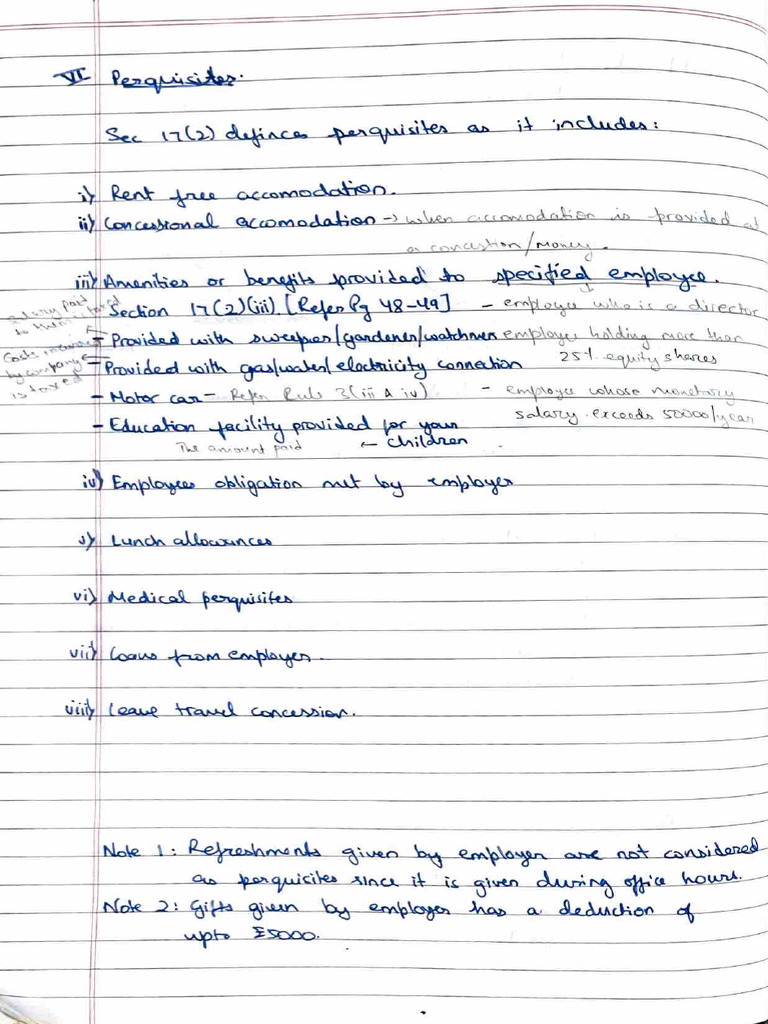 VI Perquisites.
Sec 17(2) defines perquisites as it includes:
i) Rent free accomodation.
ii) Concessional accomodation → when accomodation is provided at
a concestion/money.
iii) Amenities or benefits provided to specified employee.
salary paid
to them is taxed
- Section 17(2)(iii). [Refer Pg 48-49] - employee who is a director
- Provided with sweeper/gardener/watchmen employee holding more than
Costs incurred
by company
is taxed
- Provided with gas/water/electricity connection 25% equity shares
- Motor car - Refer Rule 3(iii & iv) - employee whose monetary
salary exceeds 50000/year
- Education facility provided for your
The amount paid ← children
iv) Employees obligation met by employer
v) Lunch allowances
vi) Medical perquisites
vii) Loans from employer.
viii) Leave travel concession.
Note 1: Refreshments given by employer are not considered
as perquisites since it is given during office hours.
Note 2: Gifts given by employer has a deduction of
upto ₹5000.